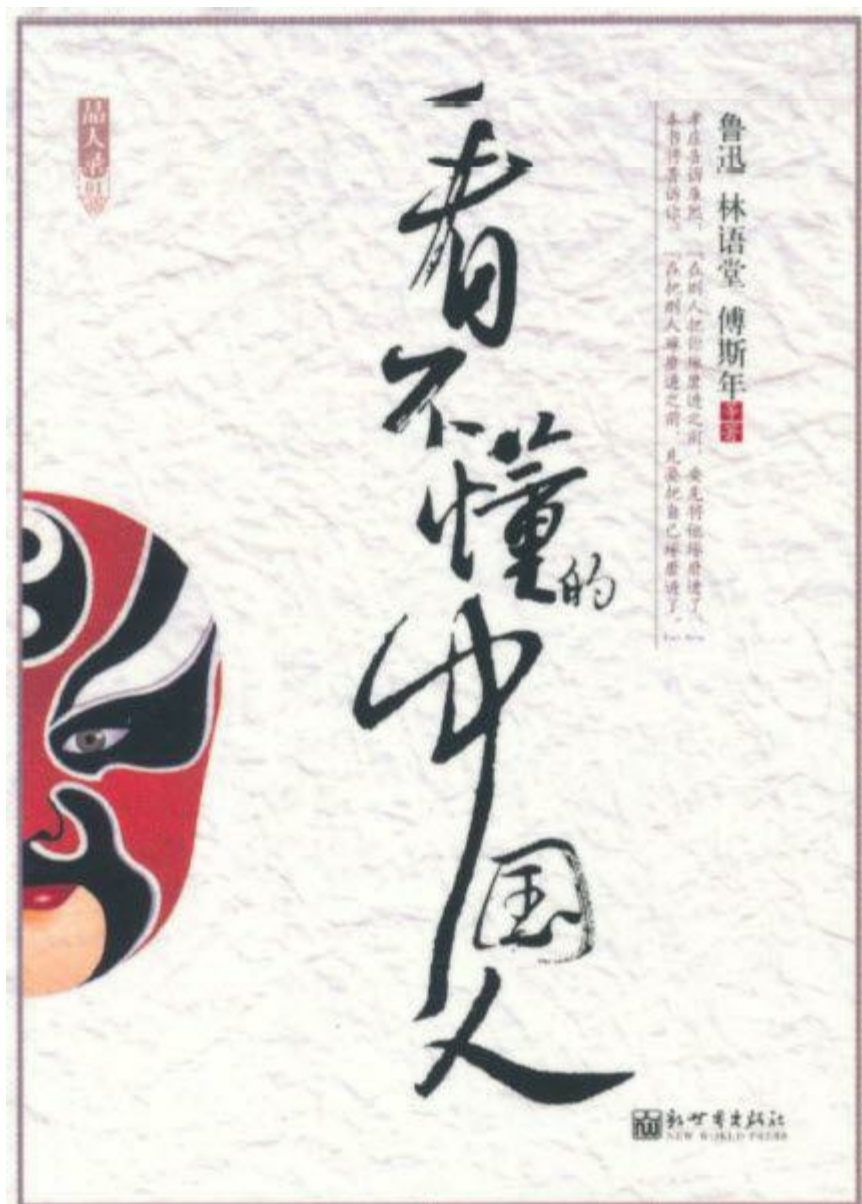 鲁迅 林语堂 傅斯年 等著
孝庄告诉康熙,『在别人把你琢磨透之前,要先将他琢磨透了。
本书将告诉你,『在把别人琢磨透之前,先要把自己琢磨透了。
看不懂的中国人
品人录
01
新世界出版社
NEW WORLD PRESS